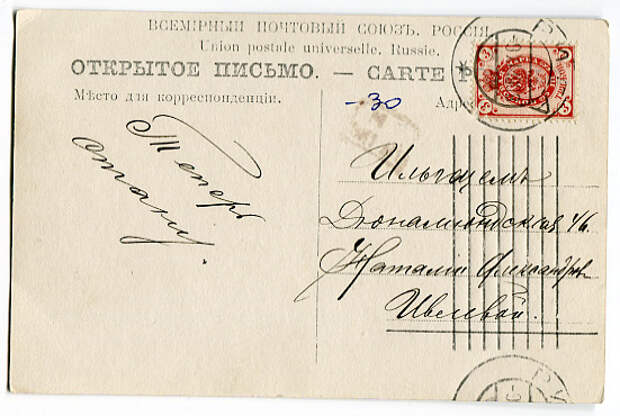 ВСЕМІРНЫЙ ПОЧТОВЫЙ СОЮЗЪ. РОССІЯ
Union postale universelle. Russie.
ОТКРЫТОЕ ПИСЬМО. — CARTE P
Мѣсто для корреспонденціи.
Адре
-30
Теперь
отстань.
Ильгецемъ
46.
Наталіи Александров
Ивелевой.
3
3
3
3
РИ